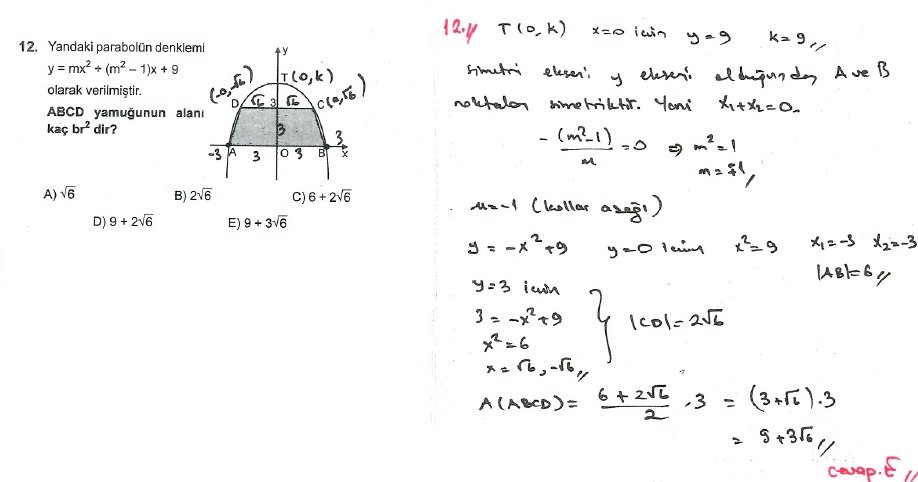 12. Yandaki parabolün denklemi
y = mx² + (m² – 1)x + 9
olarak verilmiştir.
ABCD yamuğunun alanı
kaç br² dir?
y
T(0,k)
(-0,√6)
D √6 3 √6 C (0,√6)
3
3
-3 A 3 O 3 B x
A) √6 B) 2√6 C) 6 + 2√6
D) 9 + 2√6 E) 9 + 3√6
12.// T(0,k) x=0 için y=9 k=9//
Simetri ekseni y ekseni olduğundan A ve B
noktaları simetriktir. Yani x₁+x₂=0.
-(m²-1)/m =0 ⇒ m²=1
m=∓1//
m=-1 (kollar aşağı)
y=-x²+9 y=0 için x²=9 x₁=-3 x₂=-3
|AB|=6//
y=3 için
3=-x²+9
x²=6
x=√6,-√6//
|CD|=2√6
A(ABCD)= (6+2√6)/2 .3 = (3+√6).3
= 9+3√6//
cevap.E//